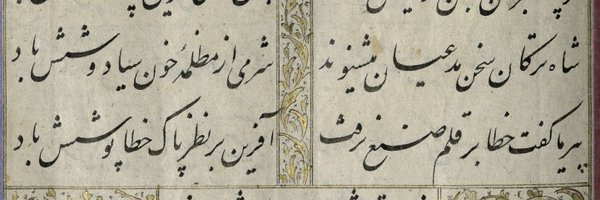 شاه ترکان سخن مدعیان میشنوند شرمی از مظلمهٔ خون سیاووشش باد
پیر ما گفت خطا بر قلم صنع نرفت آفرین بر نظر پاک خطا پوشش باد